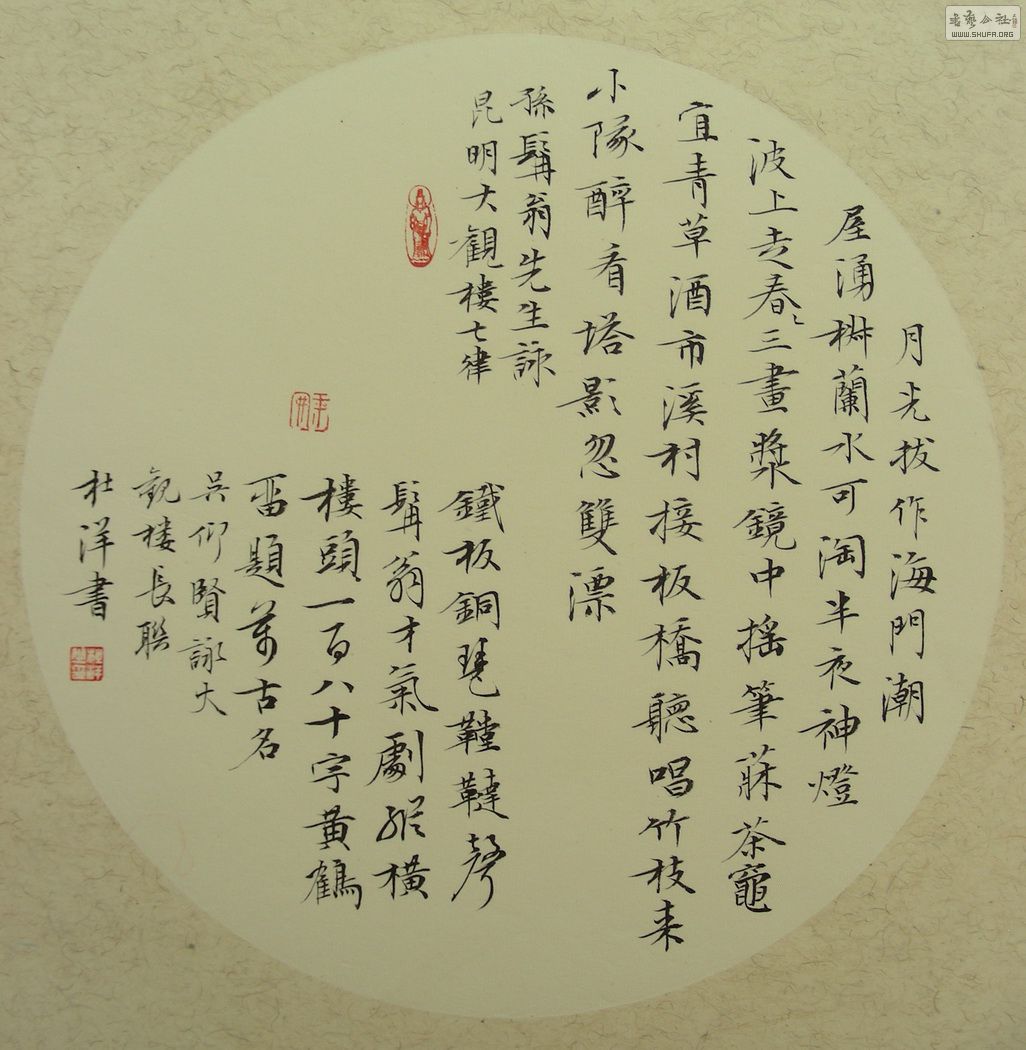 月光拔作海門潮
屋湧樹蘭水可淘半夜神燈
波上走春々三畫槳鏡中搖筆蔴茶竈
宜青草酒市溪村接板橋聽唱竹枝来
小隊醉看塔影忽雙漂
孫髯翁先生詠
昆明大觀樓七律
鐵板銅琵鞺鞳聲
髯翁才氣劇縱橫
樓頭一百八十字黃鶴
畱題萬古名
吳仰賢詠大
觀樓長聯
杜洋書
書藝公社
WWW.SHUFA.ORG